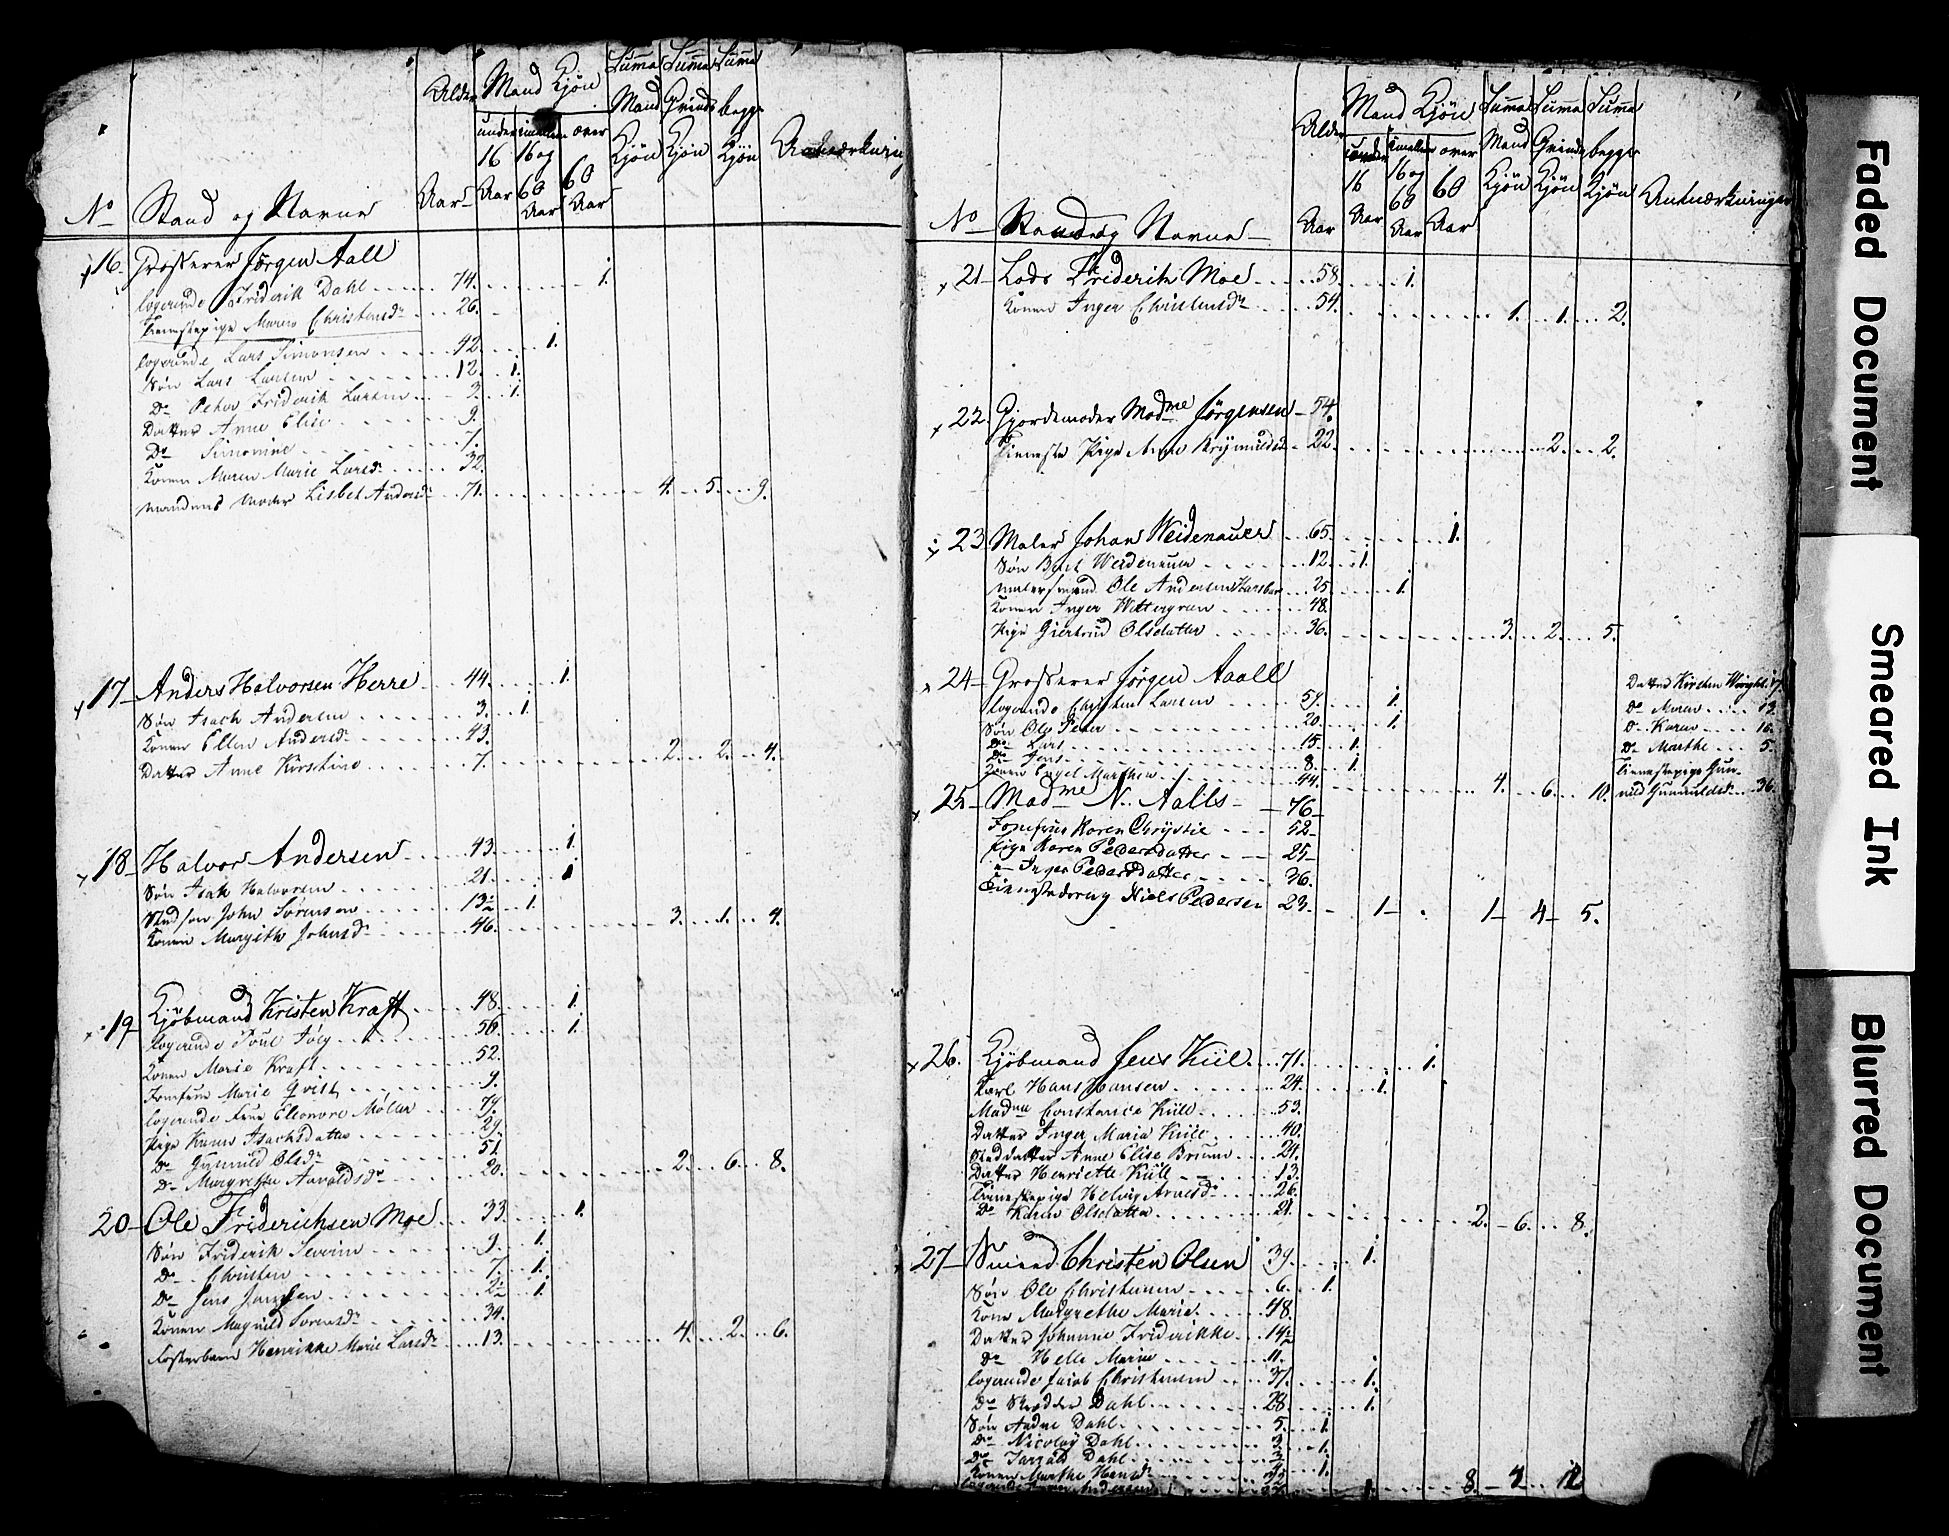 No Stand og Navne Alder Aar Mand Kjön under 16 Aar imellem 16 og 60 Aar over 60 Aar Suma Mand Kjön Suma Qvinde Kjön Suma begge Kjön Anmærkning
16 Grosserer Jörgen Aall
logerende Friderik Dahl 74. 1.
Tienestepige Maren Christensdr 26.
logerende Lars Simonsen 42. 1.
Sön Lars Larsen 12. 1.
Do Peter Friderik Larsen 3. 1.
Datter Anne Elise 9.
Do Simonine 7.
Konen Maren Marie Larsdr 32.
Mandens Moder Lisbet Andersdr 71. 4. 5. 9.
17 Anders Halvorsen Herre 44. 1.
Sön Isach Andersen 3. 1.
Konen Ellen Andersdr 43.
Datter Anne Kirstine 7. 2. 2. 4.
18 Halvor Andersen 43. 1.
Sön Isak Halvorsen 21. 1
Stedsön John Sörensen 13½ 1.
Konen Margith Johnsdr 46. 3. 1. 4.
19 Kjöbmand Kristen Kraft 48. 1.
logerende Poul 56. 1.
Konen Marie Kraft 52.
Jomfrue Marie Qvist 9.
logerende Frue Eleonore Möller 79.
Pige Karen Isachsdatter 29.
Do Gunnild Olsdr 51.
Do Margrethe Arvaldsdr 20. 2. 6. 8.
20 Ole Friderichsen Moe 33. 1.
Sön Friderik Severin 9. 1.
Do Christen 7. 1.
Do Jens 2½ 1.
Konen Magnild Sörensdr 34.
Fosterbarn Henrikke Marie Larsdr 13. 4. 2. 6.
No Stand og Navne Alder Aar Mand Kjön under 16 Aar imellem 16 og 60 Aar over 60 Aar Suma Mand Kjön Suma Qvinde Kjön Suma begge Kjön Anmærkninger
21 Lods Friderik Moe 58. 1.
Konen Inger Christensdr 54. 1. 1. 2.
22 Gjordemoder Madme Jörgensen 54.
Tieneste Pige Anne 22. 2. 2.
23 Maler Johan Weidenauer 65. 1.
Sön Bent Weidenauer 12. 1.
Malersvend Ole Andersen 25. 1.
Konen Inger Wettergreen 48.
Pige Giertrud Olsdatter 36. 3. 2. 5.
24 Grosserer Jörgen Aall
logerende Christen Larsen 59. 1.
Sön Ole Peter 20. 1.
Do Lars 15. 1.
Do Jens 8. 1.
Konen Engel Marthea 44. 4. 6. 10.
Datter Kirsten 17.
Do Maren 13.
Do Karen
Do Marthe 5.
Tienestepige Gun-
nild Gunnuldsdr 36.
25 Madme N. Aalls 76
Jomfrue Karen Chrystie 52
Pige Karen Pedersdatter 25
" Inger Pedersdatter 36.
Tienestedreng Niels Pedersen 23. 1 1 4 5.
26. Kjöbmand Jens Kiil 71. 1.
Karl Hans Hansen 24. 1.
Madme Constance Kiil 53.
Datter Inger Maria Kiil 40.
Steddatter Anne Elise Bruun 21.
Datter Henriette Kiil 13.
Tienestepige Helvig Arvesdr 26.
Do Karen Olsdatter 21. 2. 6. 8.
27 Smed Christen Olsen 39. 1.
Sön Ole Christensen 6. 1.
Kone Margrethe Marie 48.
Datter Johanne Friderikke 14½
Do Helle Marie 11.
logerende Jacob Christensen 37. 1.
Do Skredder Dahl 28. 1.
Sön Andre Dahl 5. 1.
Do Nicolay Dahl 3. 1.
Do Dahl 1.
Konen Marthe Hansdr 32.
logerende Andersen 1. 8. 12
Faded Document
Smeared Ink
Blurred Document